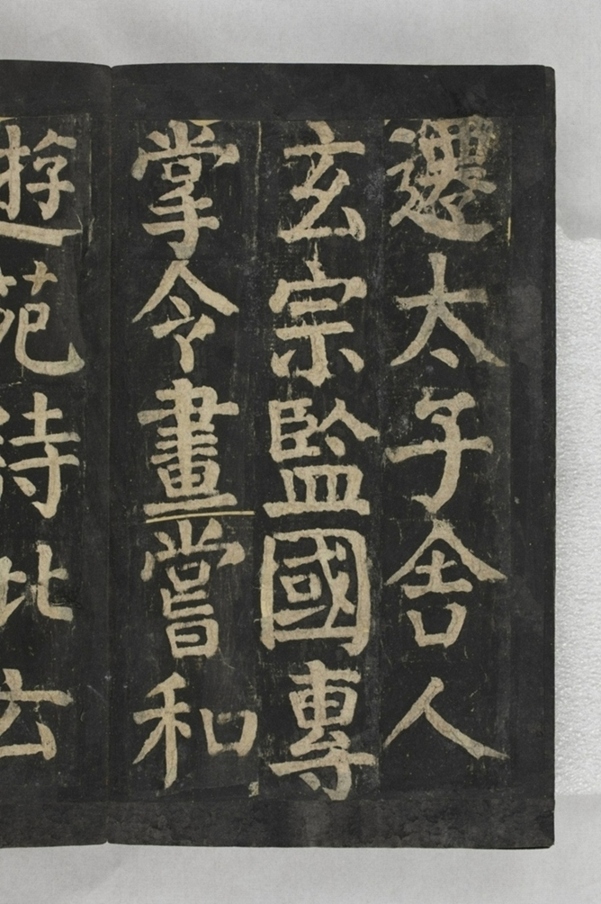 遷太子舍人
玄宗監國專
掌令畫嘗和
遊苑詩比玄